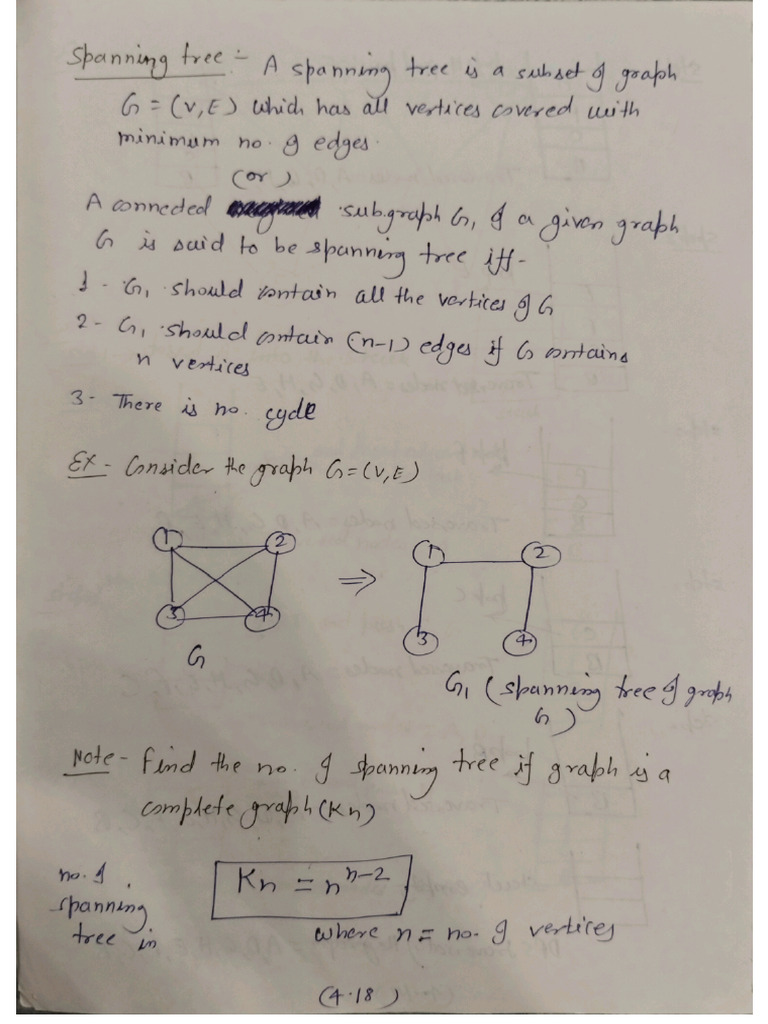 Spanning tree :- A spanning tree is a subset of graph
G = (V,E) which has all vertices covered with
minimum no. of edges.
(or)
A connected subgraph G1 of a given graph
G is said to be spanning tree iff-
1 - G1 should contain all the vertices of G
2 - G1 should contain (n-1) edges if G contains
n vertices
3 - There is no. cycle
EX - Consider the graph G=(V,E)
1 2 1 2
3 4 ⇒ 3 4
G
G1 (spanning tree of graph
G)
Note - Find the no. of spanning tree if graph is a
complete graph (Kn)
no. of
spanning
tree in
Kn = n^(n-2)
where n = no. of vertices
(4.18)